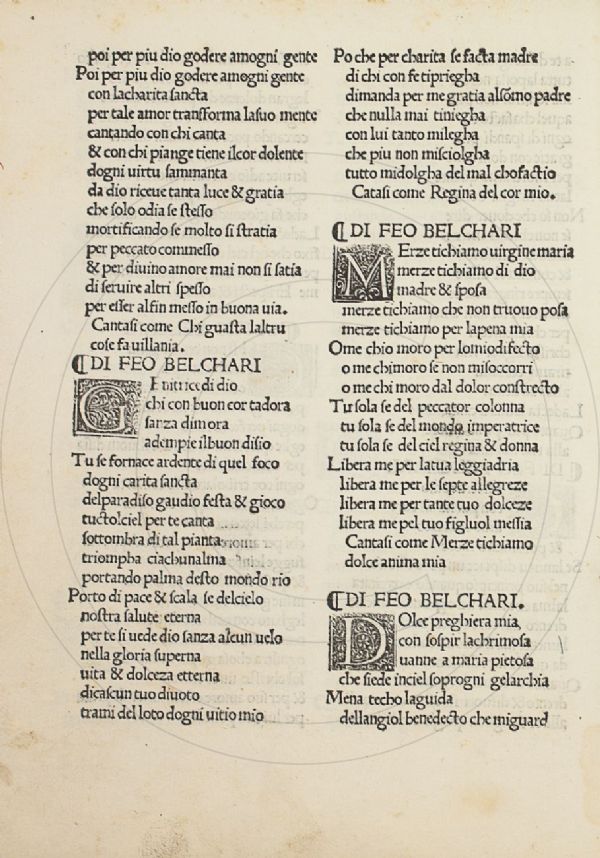 poi per piu dio godere amogni gente
Poi per piu dio godere amogni gente
con lacharita sancta
per tale amor transforma lasuo mente
cantando con chi canta
& con chi piange tiene ilcor dolente
dogni uirtu sammanta
da dio riceue tanta luce & gratia
che solo odia se stesso
mortificando se molto si stratia
per peccato commesso
& per diuino amore mai non si satia
di seruire altri spesso
per esser alfin messo in buona uia.
Cantasi come Chi guasta laltru
cose fa uillania.
⁋DI FEO BELCHARI
GEnitrice di dio
chi con buon cor tadora
sanza dimora
adempie ilbuon disio
Tu se fornace ardente di quel foco
dogni carita sancta
delparadiso gaudio festa & gioco
tuctolciel per te canta
sottombra di tal pianta
triompha ciachunalma
portando palma desto mondo rio
Porto di pace & scala se delcielo
nostra salute eterna
per te si uede dio sanza alcun uelo
nella gloria superna
uita & dolceza etterna
dicascun tuo diuoto
trami del loto dogni uitio mio
Po che per charita se facta madre
di chi con fe tipriegha
dimanda per me gratia alsõmo padre
che nulla mai tiniegha
con lui tanto milegha
che piu non misciolgha
tutto midolgha del mal chofactio
Catasi come Regina del cor mio.
⁋DI FEO BELCHARI
MErze tichiamo uirgine maria
merze tichiamo di dio
madre & sposa
merze tichiamo che non truouo posa
merze tichiamo per lapena mia
Ome chio moro per lomiodifecto
o me chimoro se non misoccorri
o me chi moro dal dolor constrecto
Tu sola se del peccator colonna
tu sola se del mondo imperatrice
tu sola se del ciel regina & donna
Libera me per latua leggiadria
libera me per le septe allegreze
libera me per tante tuo dolceze
libera me pel tuo figluol messia
Cantasi come Merze tichiamo
dolce anima mia
⁋DI FEO BELCHARI.
DOlce preghiera mia,
con sospir lachrimosa
uanne a maria pietosa
che siede inciel soprogni gelarchia
Mena techo laguida
dellangiol benedecto che miguard